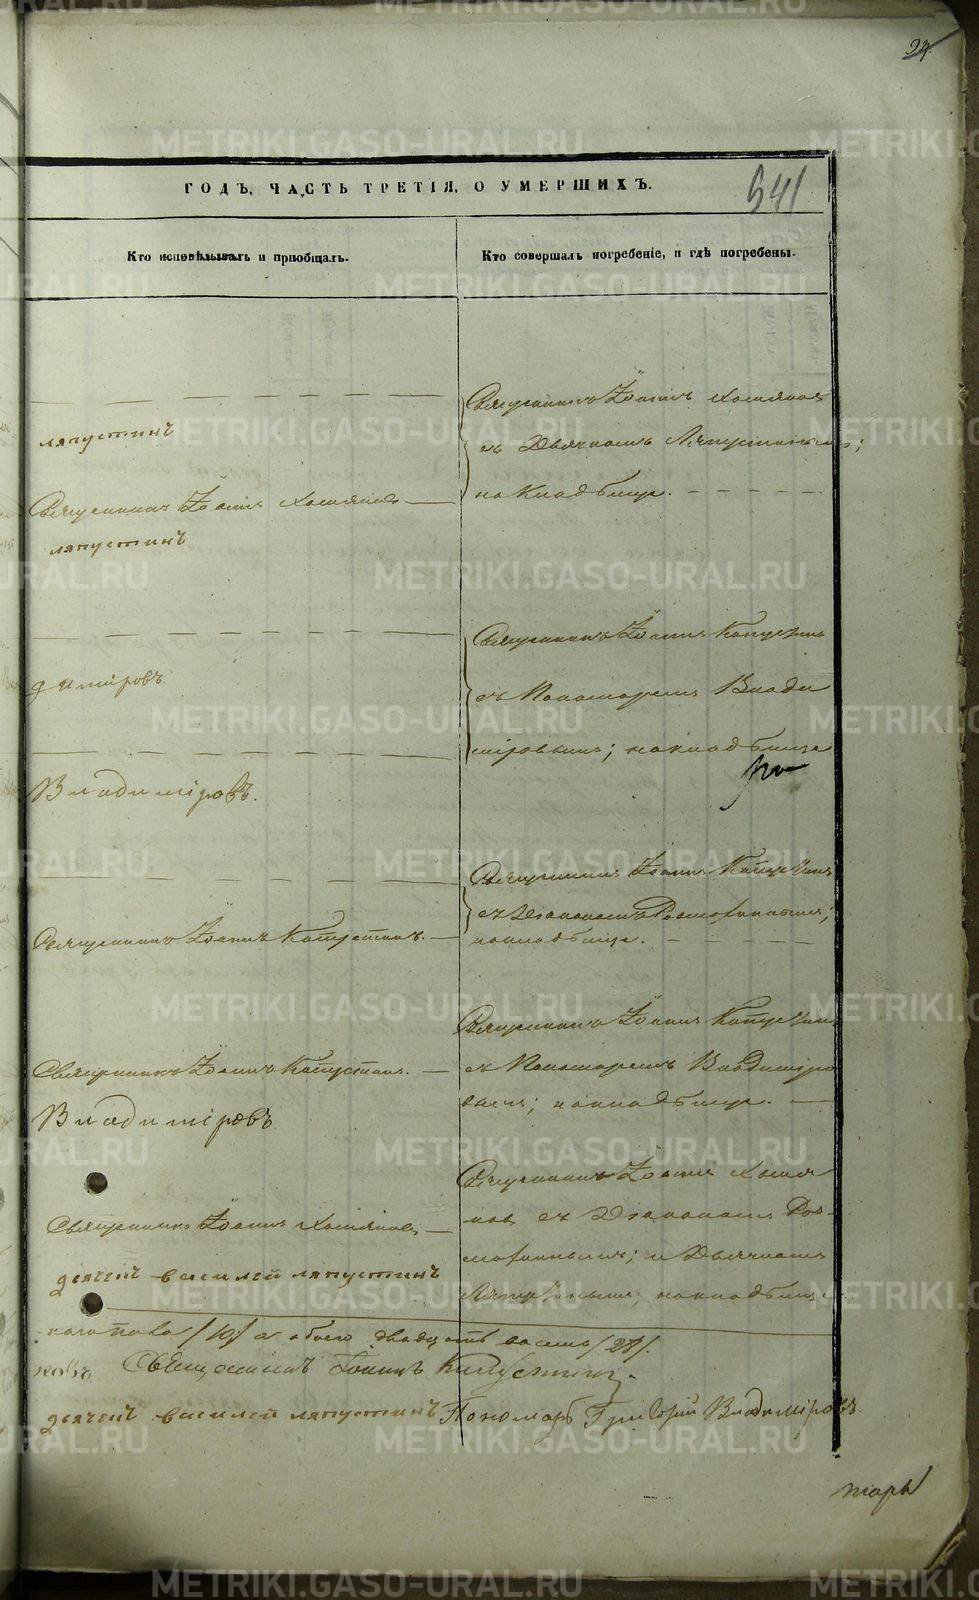 ГОДЪ, ЧАСТЬ ТРЕТІЯ, О УМЕРШИХЪ.
541
Кто исповѣдывалъ и пріобщалъ.
Кто совершалъ погребеніе, и гдѣ погребены.
ляпустинъ
Священникъ Іоаннъ Хомяковъ
ляпустинъ
димировъ
Владиміровъ.
Священникъ Іоаннъ Капустинъ.
Священникъ Іоаннъ Капустинъ.
Владиміровъ
Священникъ Іоаннъ Хомяковъ
дьячекъ василей ляпустинъ
Священникъ Іоаннъ Хомяковъ
съ Дьячкомъ Ляпустинымъ;
на Кладбище.
Священникъ Іоаннъ Капустинъ
съ Пономаремъ Влади
міровымъ; на кладбище
Священникъ Іоаннъ Капустинъ
съ Діакономъ
на кладбище.
Священникъ Іоаннъ Капустинъ
съ Пономаремъ Владиміро
вымъ; на кладбище.
Священникъ Іоаннъ Хомя
ковъ съ Діакономъ
и Дьячкомъ
Ляпустинымъ; на кладбище
пола /10/ а обоего двадцать восемь /28/.
ковъ Священникъ Іоаннъ Капустинъ.
дьячекъ василей ляпустинъ Пономарь Григорій Владиміровъ.
METRIKI.GASO-URAL.RU